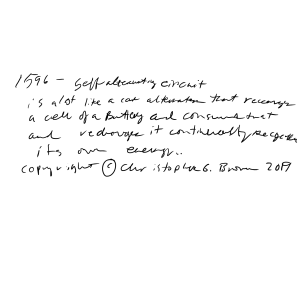 1596 - Self alternating circuit
is alot like a car alternator that recharges
a cell of a Battery and consumes that
and redraws it continually
its own energy..
copyright © Christopher G. Brown 2019